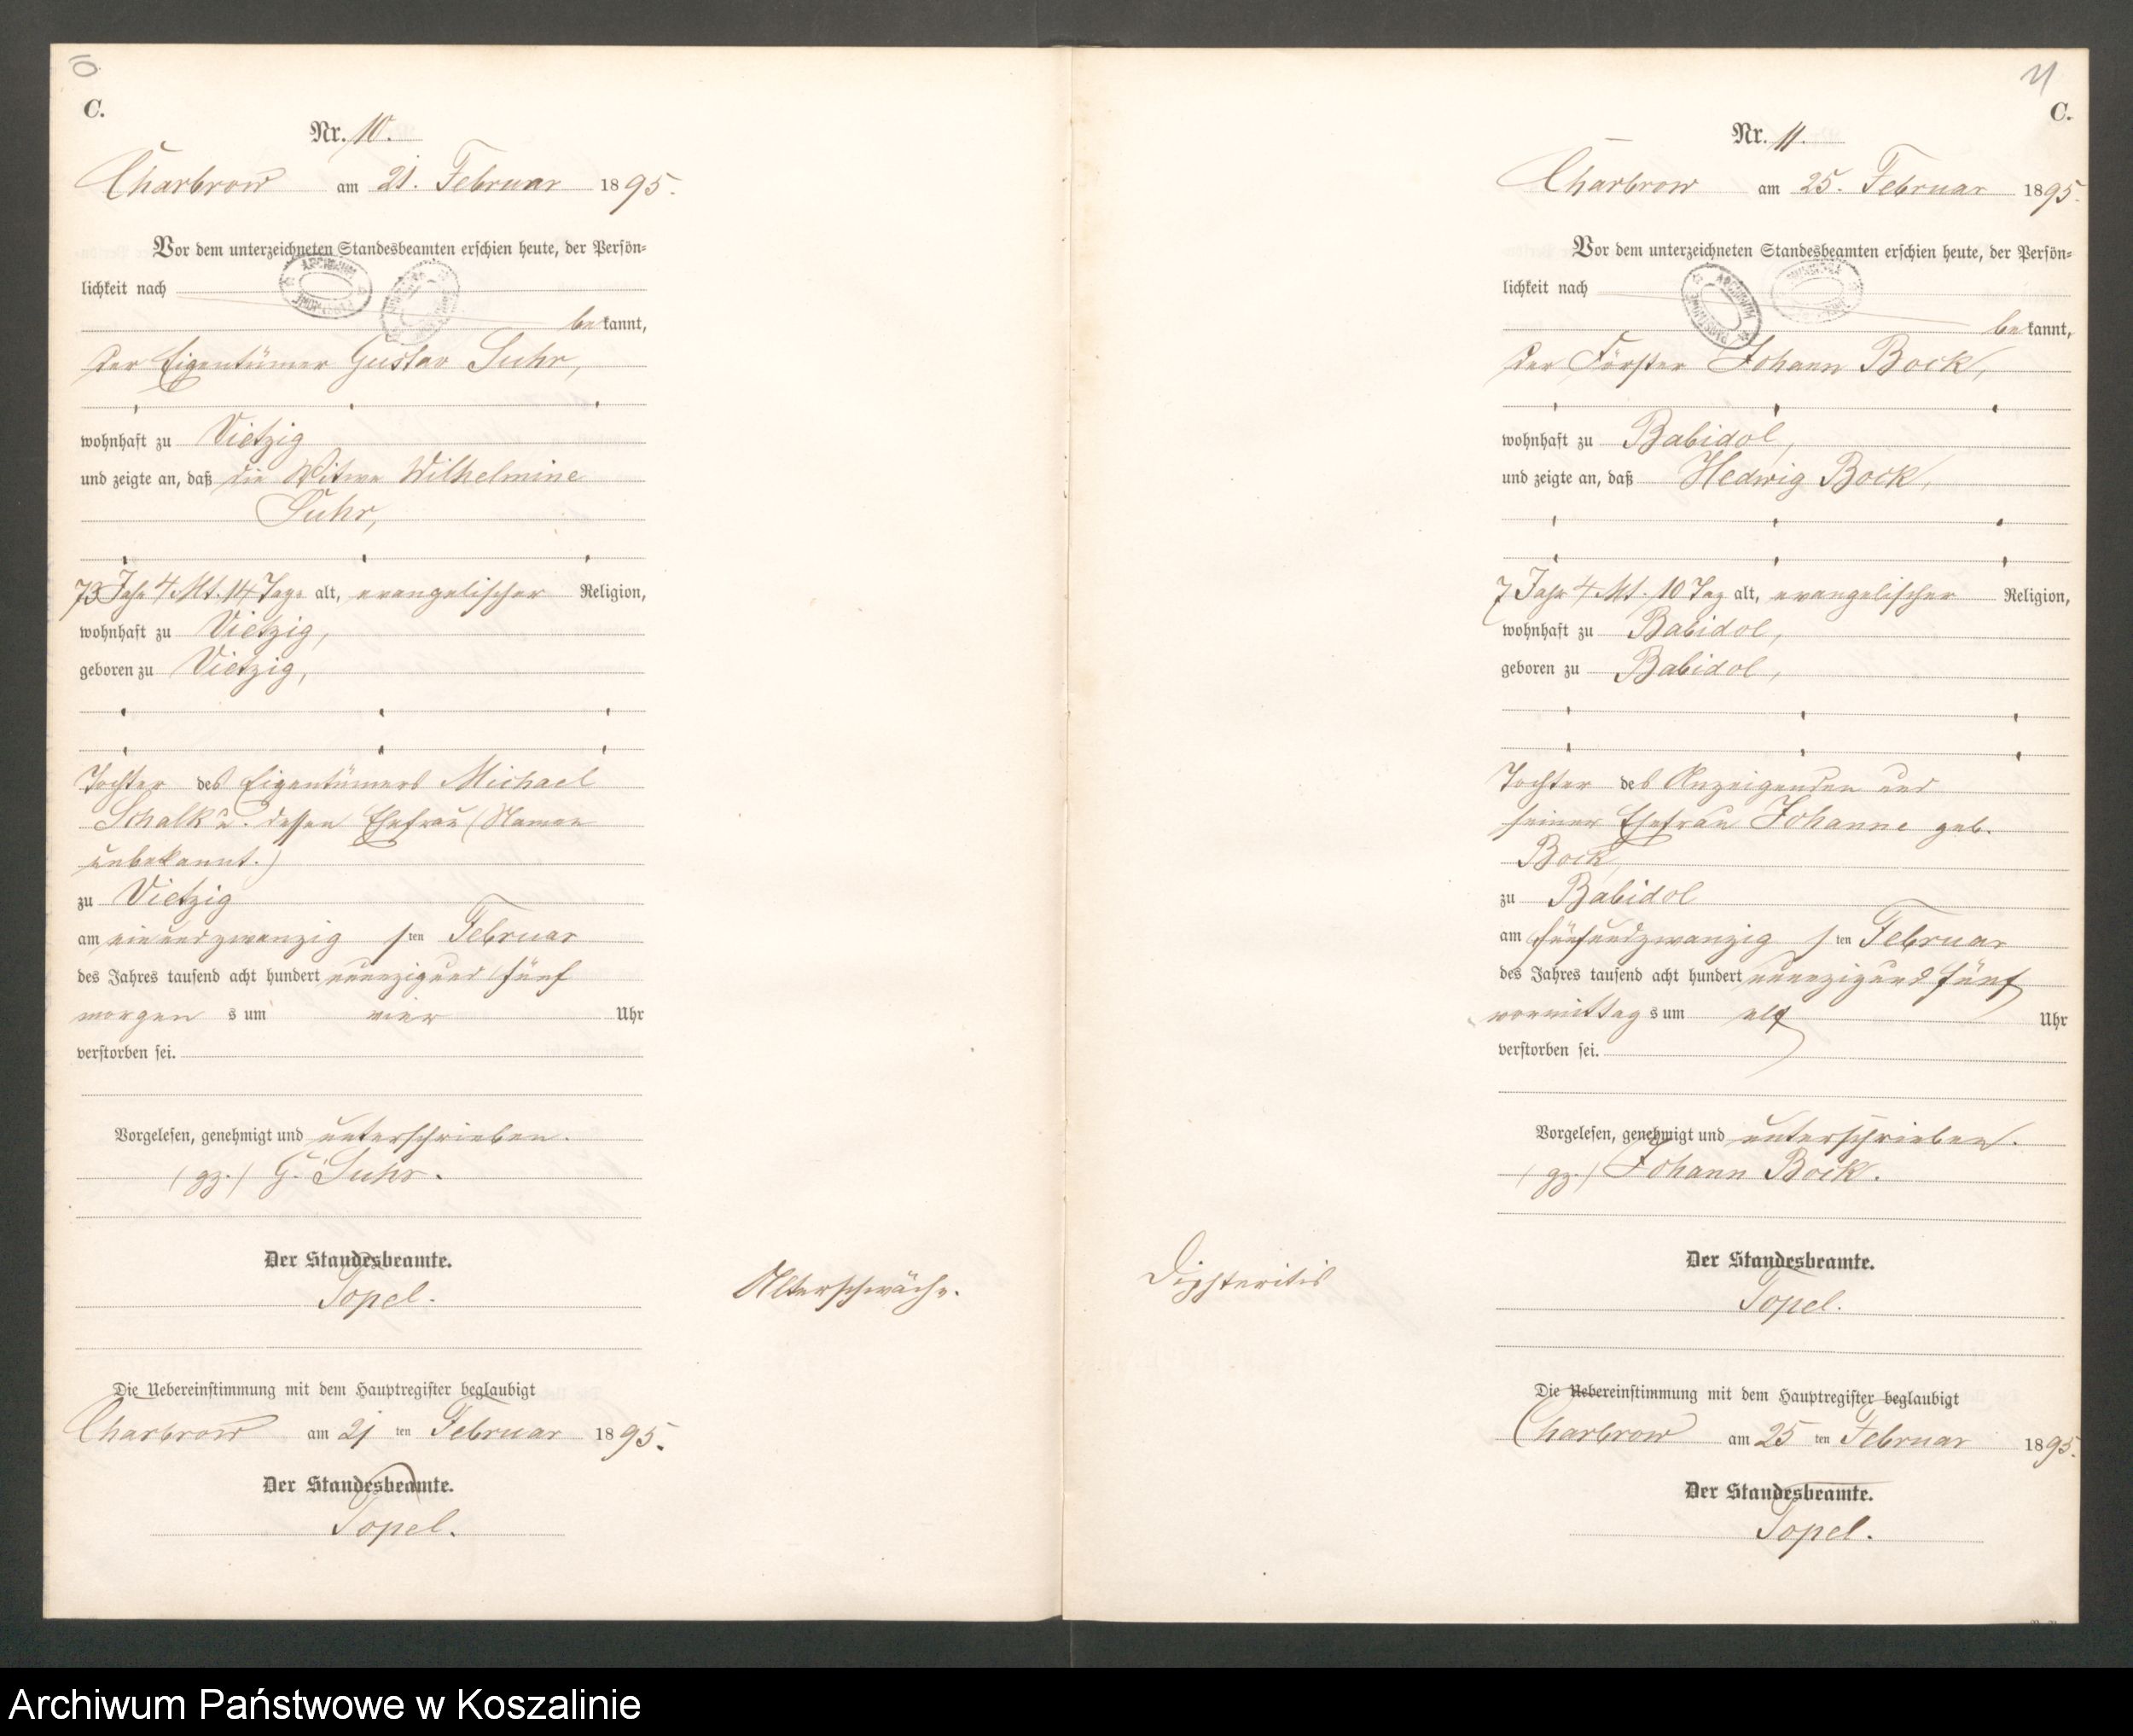 10
C.
Nr. 10.
Charbrow am 21. Februar 1895.
Vor dem unterzeichneten Standesbeamten erschien heute, der Persön-
lichkeit nach
bekannt,
der Eigentümer Gustav Suhr,
wohnhaft zu Vietzig
und zeigte an, daß die Witwe Wilhelmine
Suhr,
73 Jahr 4 Mt. 14 Tage alt, evangelischer Religion,
wohnhaft zu Vietzig,
geboren zu Vietzig,
Tochter des Eigentümers Michael
Schalk u. dessen Ehefrau (Namen
unbekannt.)
zu Vietzig
am einundzwanzigsten Februar
des Jahres tausend acht hundert neunzigund fünf
morgens um vier Uhr
verstorben sei.
Vorgelesen, genehmigt und unterschrieben.
(gz.) G. Suhr.
Der Standesbeamte.
Topel.
Alterschwäche.
Die Uebereinstimmung mit dem Hauptregister beglaubigt
Charbrow am 21ten Februar 1895.
Der Standesbeamte.
Topel.
11
C.
Nr. 11.
Charbrow am 25. Februar 1895.
Vor dem unterzeichneten Standesbeamten erschien heute, der Persön-
lichkeit nach
bekannt,
der Förster Johann Bock,
wohnhaft zu Babidol,
und zeigte an, daß Hedwig Bock,
7 Jahr 4 Mt. 10 Tag alt, evangelischer Religion,
wohnhaft zu Babidol,
geboren zu Babidol,
Tochter des Anzeigenden und
seiner Ehefrau Johanne geb.
Bock,
zu Babidol
am fünfundzwanzigsten Februar
des Jahres tausend acht hundert neunzigund fünf
vormittags um elf Uhr
verstorben sei.
Vorgelesen, genehmigt und unterschrieben.
(gz.) Johann Bock.
Der Standesbeamte.
Topel.
Diphteritis
Die Uebereinstimmung mit dem Hauptregister beglaubigt
Charbrow am 25ten Februar 1895.
Der Standesbeamte.
Topel.
Archiwum Państwowe w Koszalinie